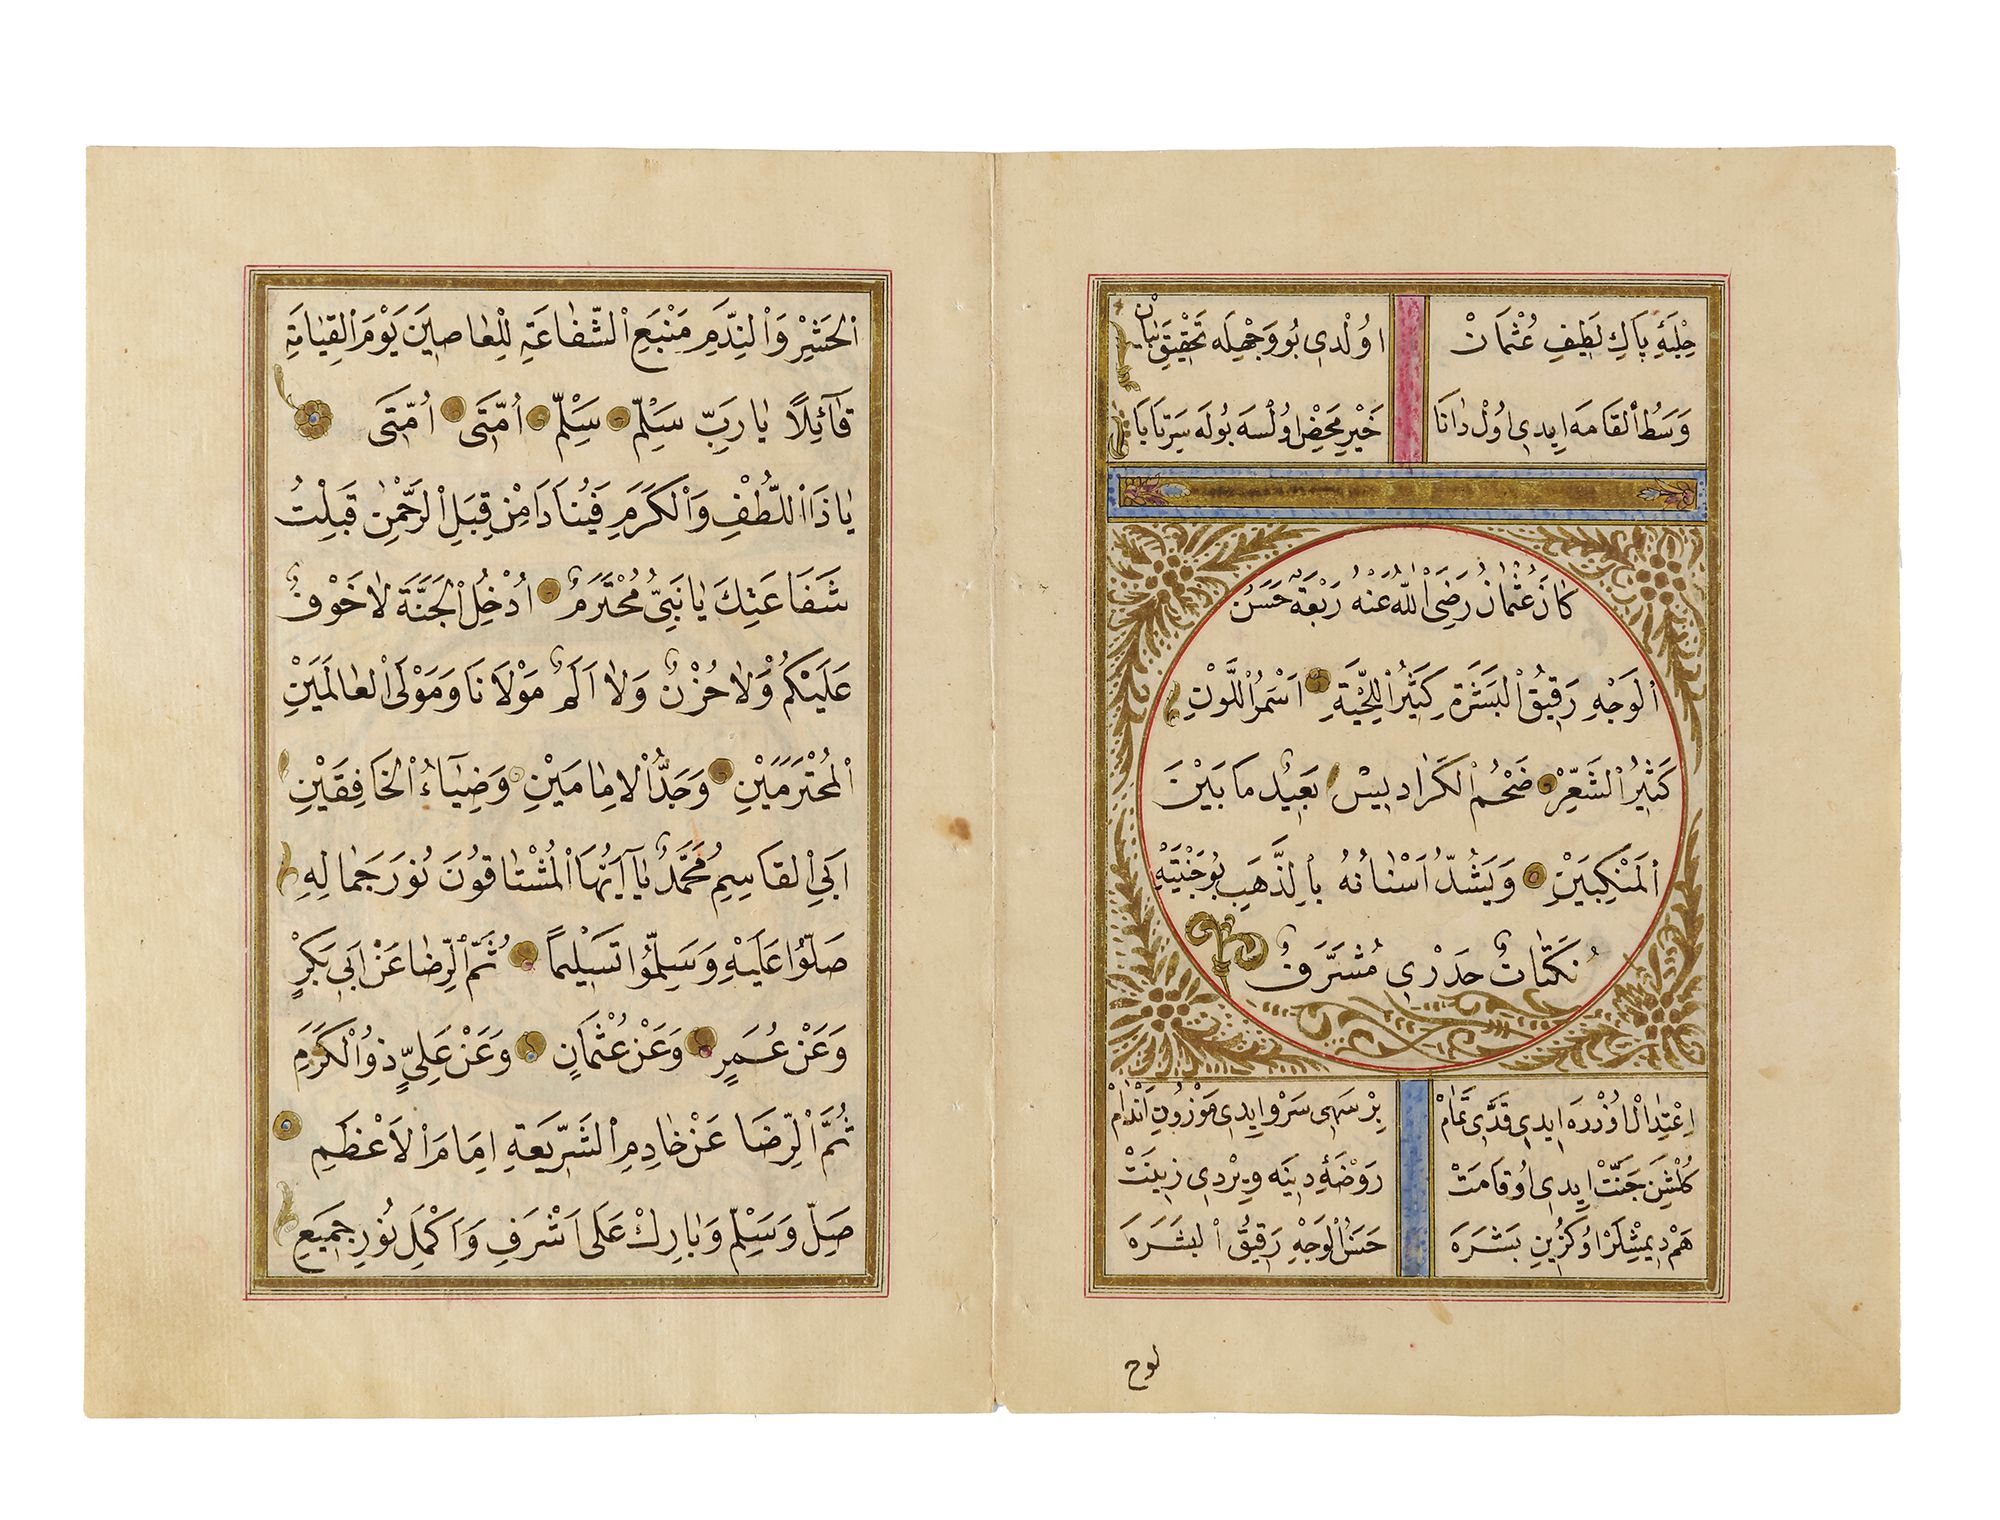 حِلْيَهِٔ پَاكِ لَطِيفِ عُثْمَانْ اوُلْدِى بُو وَجْهِلَه تَحْقِيقِ بَيَانْ
وَسَطُ الْقَامَه اِيدِى اوُلْ دَانَا خَيْرِ مَحْضِ اوُلْسَه بُولَه سَرْتَاپَا
كَانَ عُثْمَانُ رَضِىَ اللّٰهُ عَنْهُ رَبْعَةً حَسَنَ
الْوَجْهِ رَقِيقُ الْبَشَرَةِ كَثِيرُ اللِّحْيَةِ اَسْمَرُ اللَّوْنِ
كَثِيرُ الشَّعْرِ ضَخْمُ الْكَرَادِيسِ بَعِيدُ مَا بَيْنَ
الْمَنْكِبَيْنِ وَيَشُدُّ اَسْنَانُهُ بِالذَّهَبِ بِوَجْنَتَيْهِ
نَكَتَاتُ جَدَرِيٍ مُشَرَّفٌ
اِعْتِدَالْ اوُزْرَه اِيدِى قَدِّى تَمَامْ بِرْ سَهِى سَرْو اِيدِى مَوْزُونِ اَنْدَامْ
كُلْشَنِ جَنَّتْ اِيدِى اوُ قَامَتْ رَوْضَهِٔ دِينَه وِيرْدِى زِينَتْ
هَمْ دِيمِشْلَرْ اوُ كُزِينِ بَشَرَه حَسَنُ الْوَجْهِ رَقِيقُ الْبَشَرَه
لوح
الْحَشْرِ وَالنَّدَمِ مَنْبَعِ الشَّفَاعَةِ لِلْعَاصِينَ يَوْمَ الْقِيَامَةِ
قَآئِلًا يَارَبِّ سَلِّمْ سَلِّمْ اُمَّتِى اُمَّتِى
يَاذَا اللُّطْفِ وَالْكَرَمِ فَيُنَادَا مِنْ قِبَلِ الرَّحْمٰنِ قَبِلْتُ
شَفَاعَتَكَ يَانَبِىُّ مُحْتَرَمٌ اُدْخُلُ الْجَنَّةَ لَاخَوْفٌ
عَلَيْكُمْ وَلَا حُزْنٌ وَلَا اَلَمٌ مَوْلَانَا وَمَوْلَى الْعَالَمَيْنِ
الْمُحْتَرَمَيْنِ وَجَدُّ الْاِمَامَيْنِ وَضِيَآءُ الْخَافِقَيْنِ
اَبِى الْقَاسِمِ مُحَمَّدٌ يَآ اَيُّهَا الْمُشْتَاقُونَ نُورَ جَمَالِهِ
صَلُّوا عَلَيْهِ وَسَلِّمُوا تَسْلِيمًا ثُمَّ الرِّضَا عَنْ اَبِى بَكْرٍ
وَعَنْ عُمَرٍ وَعَنْ عُثْمَانٍ وَعَنْ عَلِىٍّ ذُوالْكَرَمِ
ثُمَّ الرِّضَا عَنْ خَادِمِ الشَّرِيعَةِ اِمَامَ الْاَعْظَمِ
صَلِّ وَسَلِّمْ وَبَارِكْ عَلَى اَشْرَفِ وَاَكْمَلِ نُورِ جَمِيعِ